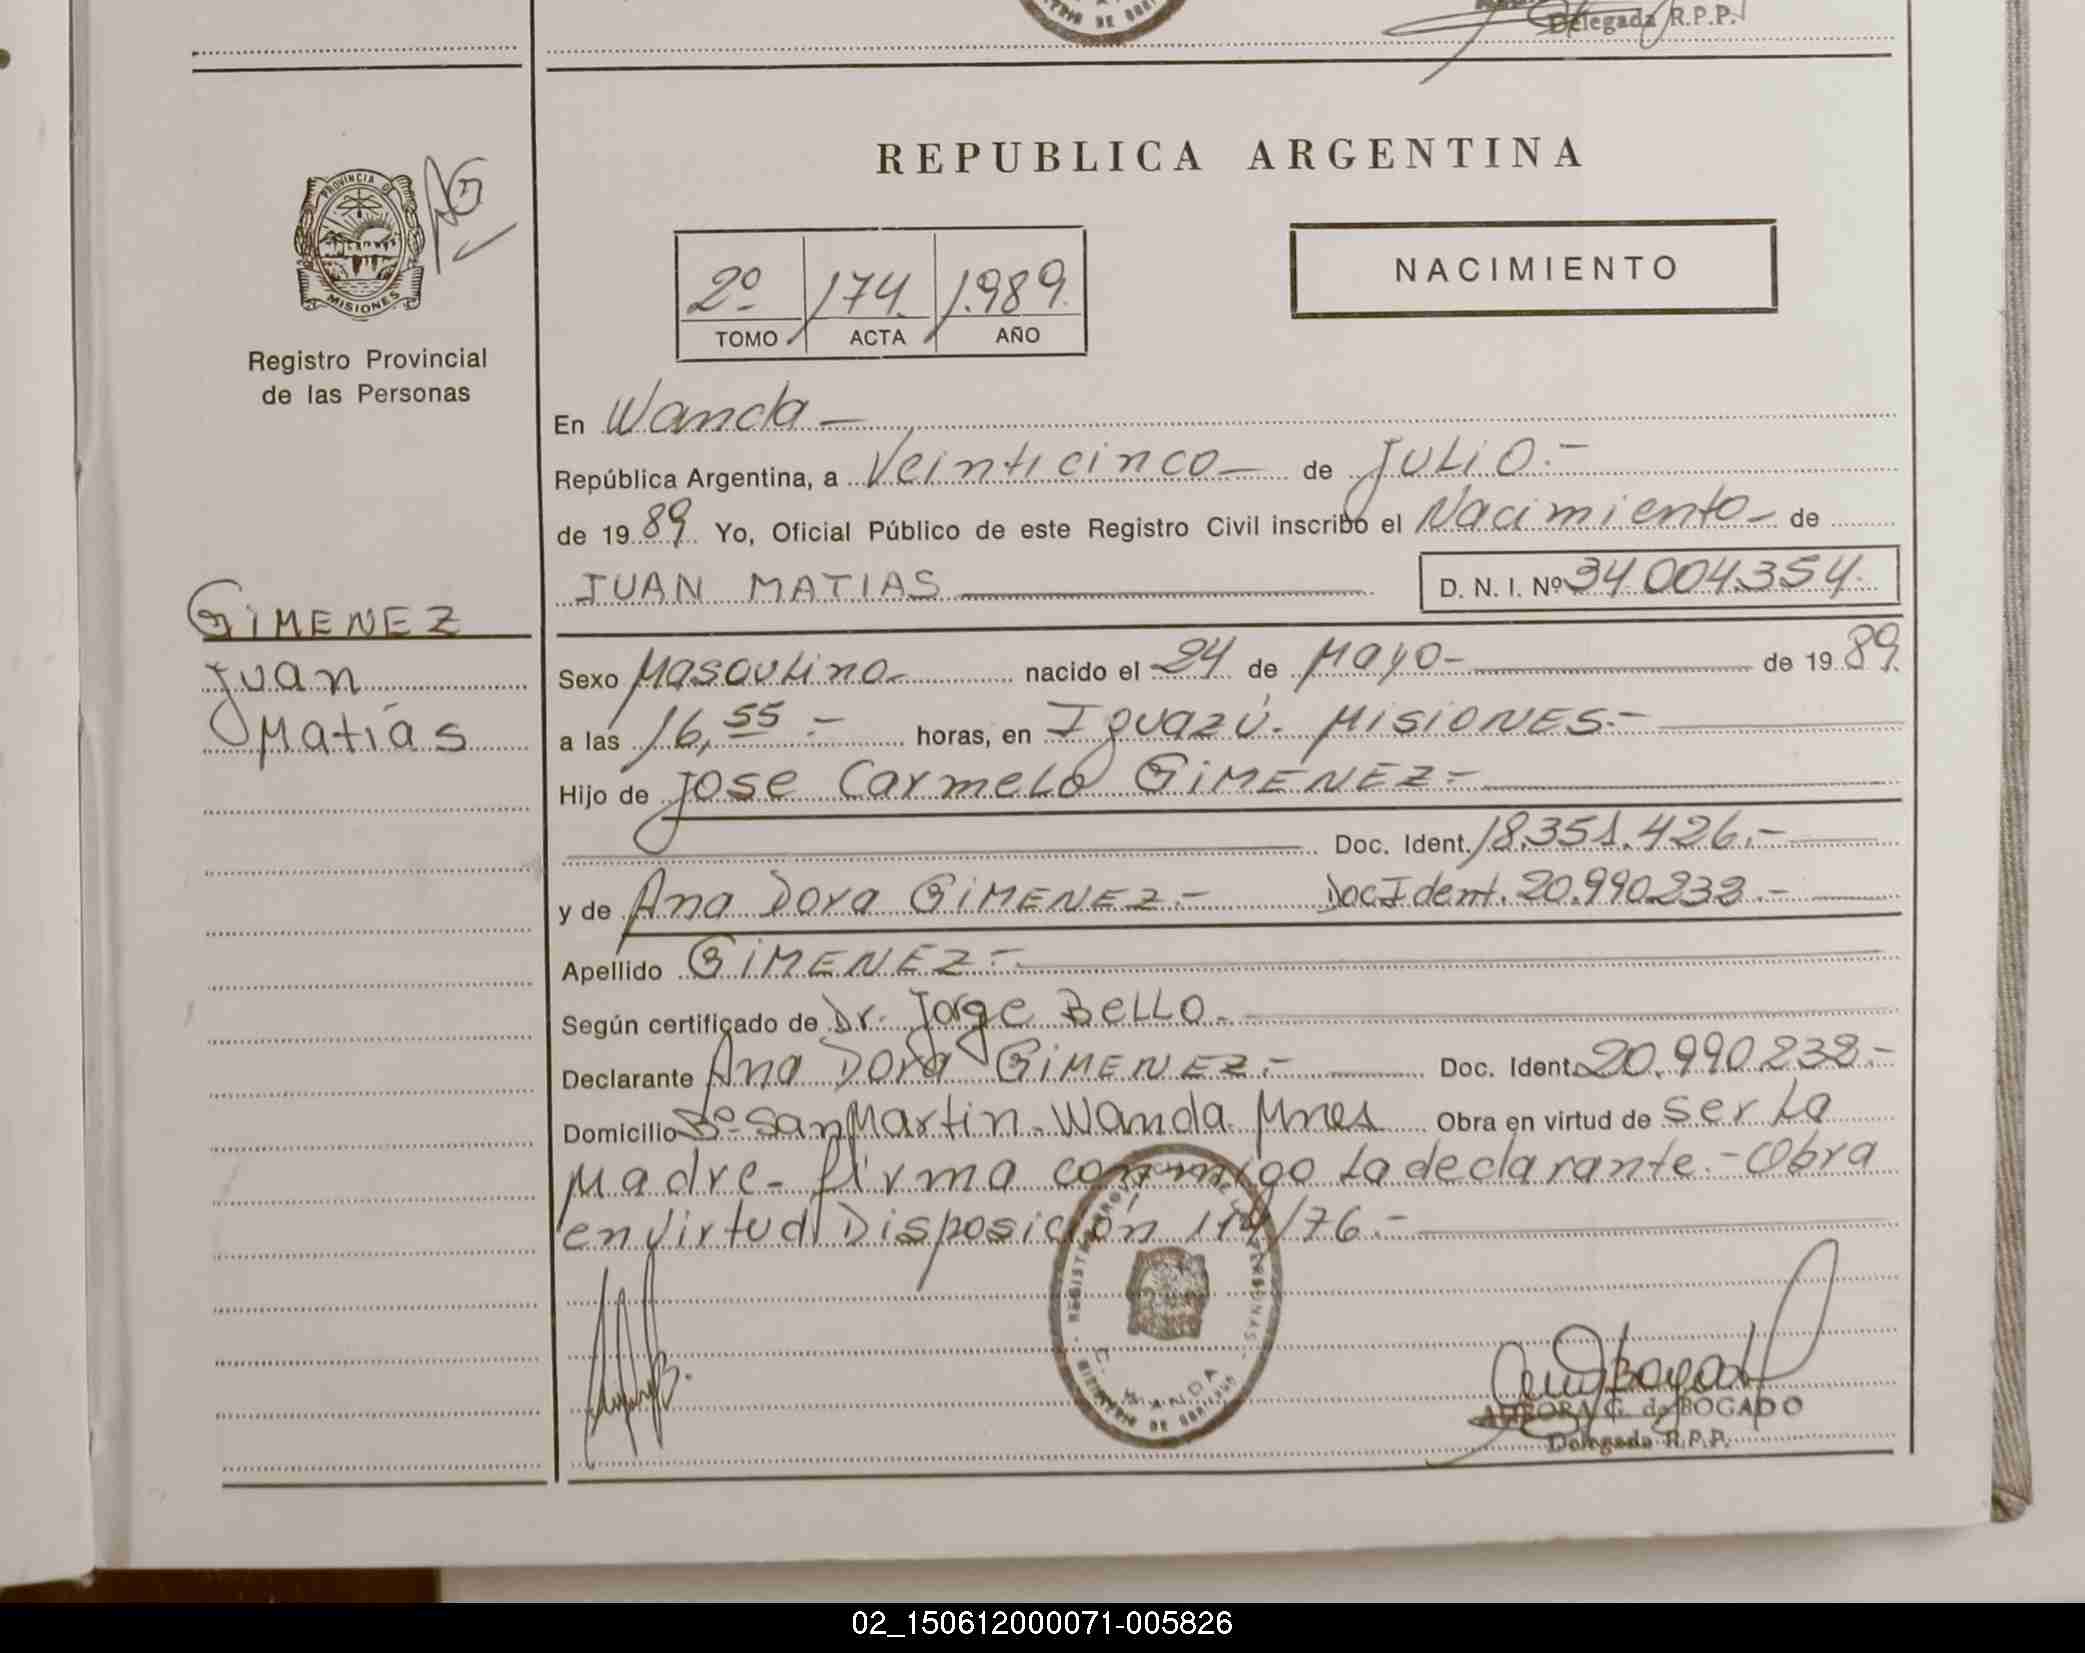 Delegada R.P.P.
PROVINCIA DE
MISIONES
Registro Provincial
de las Personas
REPUBLICA ARGENTINA
2º 174. 1.989.
TOMO ACTA AÑO
NACIMIENTO
En Wanda -
República Argentina, a Veinticinco - de Julio.-
de 19 89 Yo, Oficial Público de este Registro Civil inscribo el Nacimiento - de
JUAN MATIAS D. N. I. Nº 34.004.354.
GIMENEZ
Juan
Matías
Sexo Masculino - nacido el 24 de Mayo - de 19 89.
a las 16,55 - horas, en Iguazú. MISIONES.-
Hijo de Jose Carmelo GIMENEZ.-
Doc. Ident. 18.351.426.-
y de Ana Dora GIMENEZ.- Doc Ident. 20.990.232.-
Apellido GIMENEZ.-
Según certificado de Dr. Jorge BELLO.-
Declarante Ana Dora GIMENEZ.- Doc. Ident. 20.990.232.-
Domicilio Bº San Martin - Wanda. Mnes Obra en virtud de ser la
Madre - firma conmigo la declarante.- Obra
en virtud Disposición 114/76.-
WANDA
AURORA G. de BOGADO
Delegada R.P.P.
02_150612000071-005826